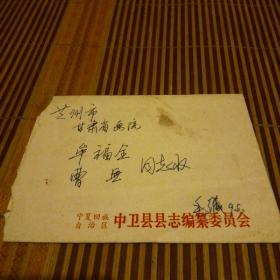 兰州市
甘肃省画院
牟福金
曹无 同志收
宁夏回族
自治区 中卫县县志编纂委员会